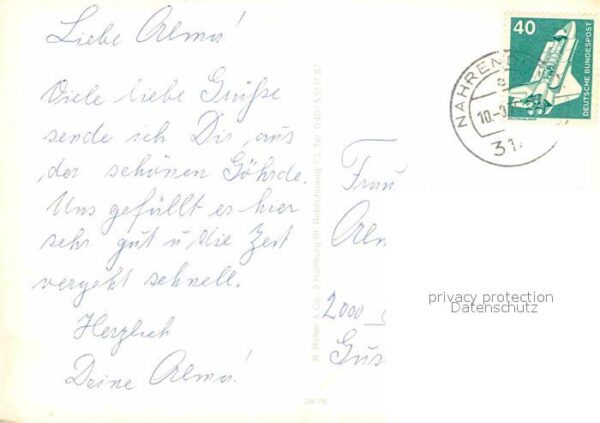 Liebe Alma!
Viele liebe Grüße
sende ich Dir aus
der schönen Göhrde.
Uns gefällt es hier
sehr gut u die Zeit
vergeht schnell.
Herzlich
Deine Alma!
R. Richter & Co., 2 Hamburg 61, Rebhuhnweg 73, Tel. 040 /
26/75
40
DEUTSCHE BUNDESPOST
NAHREN
10.-
31
Frau
Alm
2000
Gus
privacy protection
Datenschutz